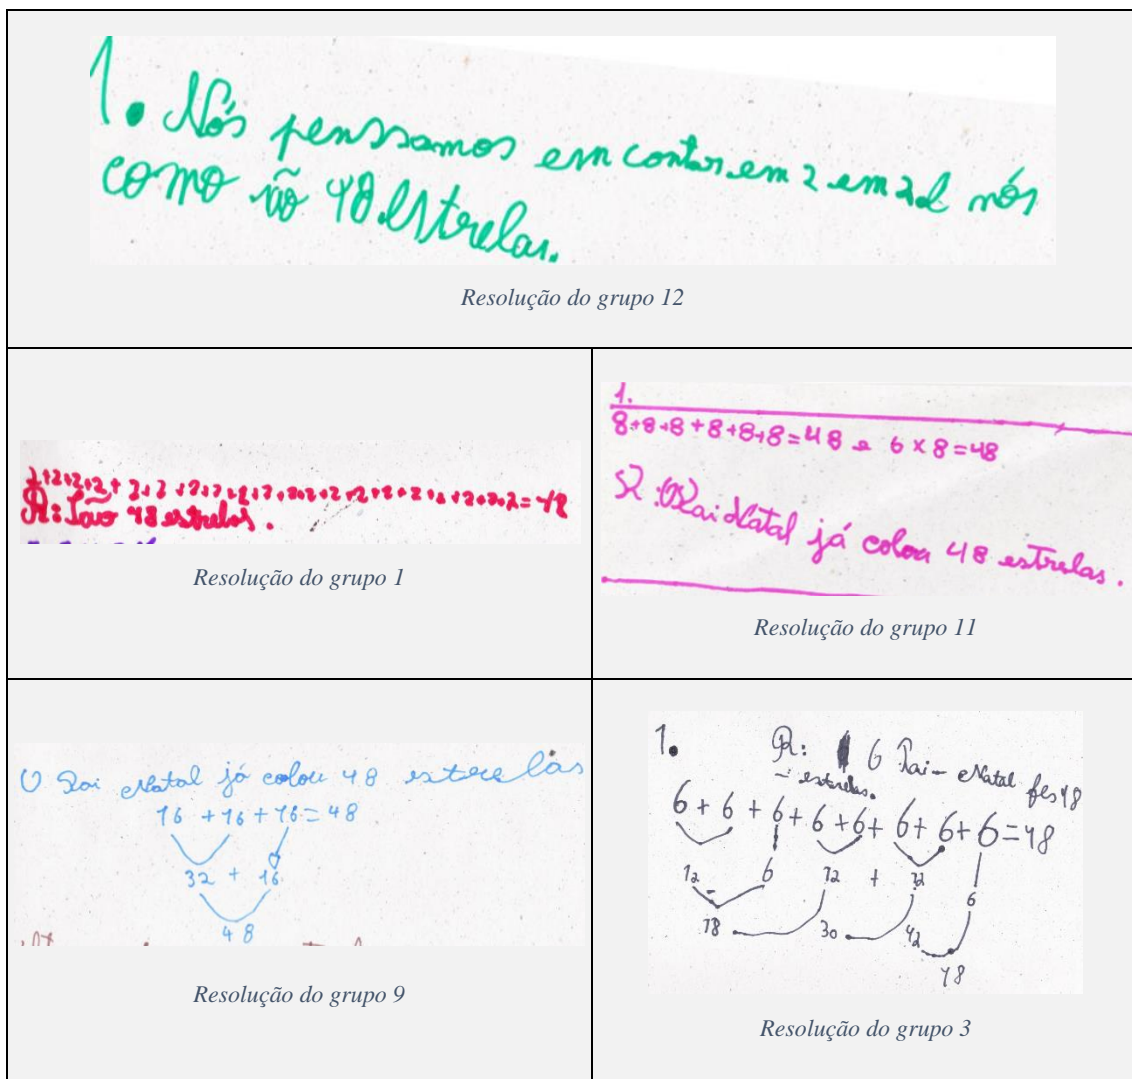 1. Nós penssamos em contar em 2 em 2 e nós
como são 48 estrelas.
Resolução do grupo 12
R: São 48 estrelas.
Resolução do grupo 1
1.
8+8+8+8+8+8=48 e 6 x 8=48
R: O Pai Natal já colou 48 estrelas.
Resolução do grupo 11
O Pai Natal já colou 48 estrelas
16 + 16 + 16 = 48
32 + 16
48
Resolução do grupo 9
1. R: 6 Pai-Natal fes 48
estrelas.
6 + 6 + 6 + 6 + 6 + 6 + 6 + 6 = 48
12 6 12 + 12 6
18 30 42
48
Resolução do grupo 3